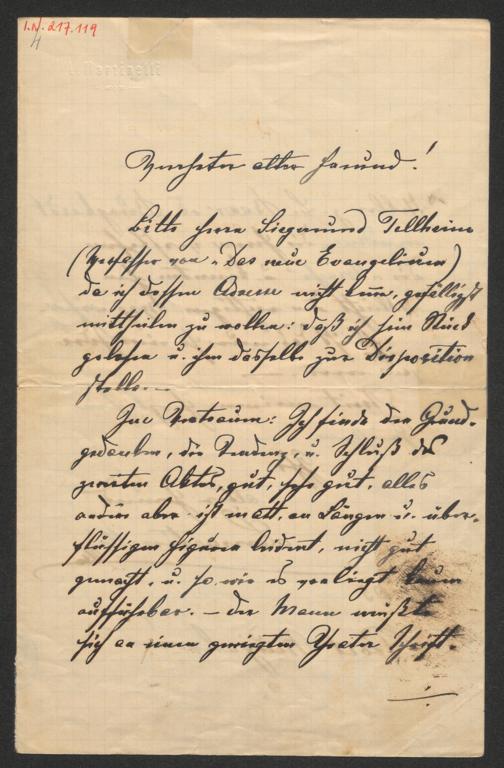 I.N. 217.119
4
L. Martinelli
Verehrter alter Freund!
bitte Herrn Siegmund Tellheim
(Verfasser von „Das neue Evangelium)
da ich dessen Adresse nicht kenne, gefälligst
mittheilen zu wollen: daß ich sein Stück
gelesen u. ihm dasselbe zur Disposition
stelle.
Im Vertrauen: Ich finde den Grund-
gedanken, die Tendenz, u. Schluß des
zweiten Aktes, gut, sehr gut, alles
andere aber ist matt, an Längen u. über-
flüssigen Figuren leidend, nicht gut
gemacht, u. so wie es vorliegt kaum
aufführbar. – Der Mann müßte
sich an einen gewiegten Theater Schrift-